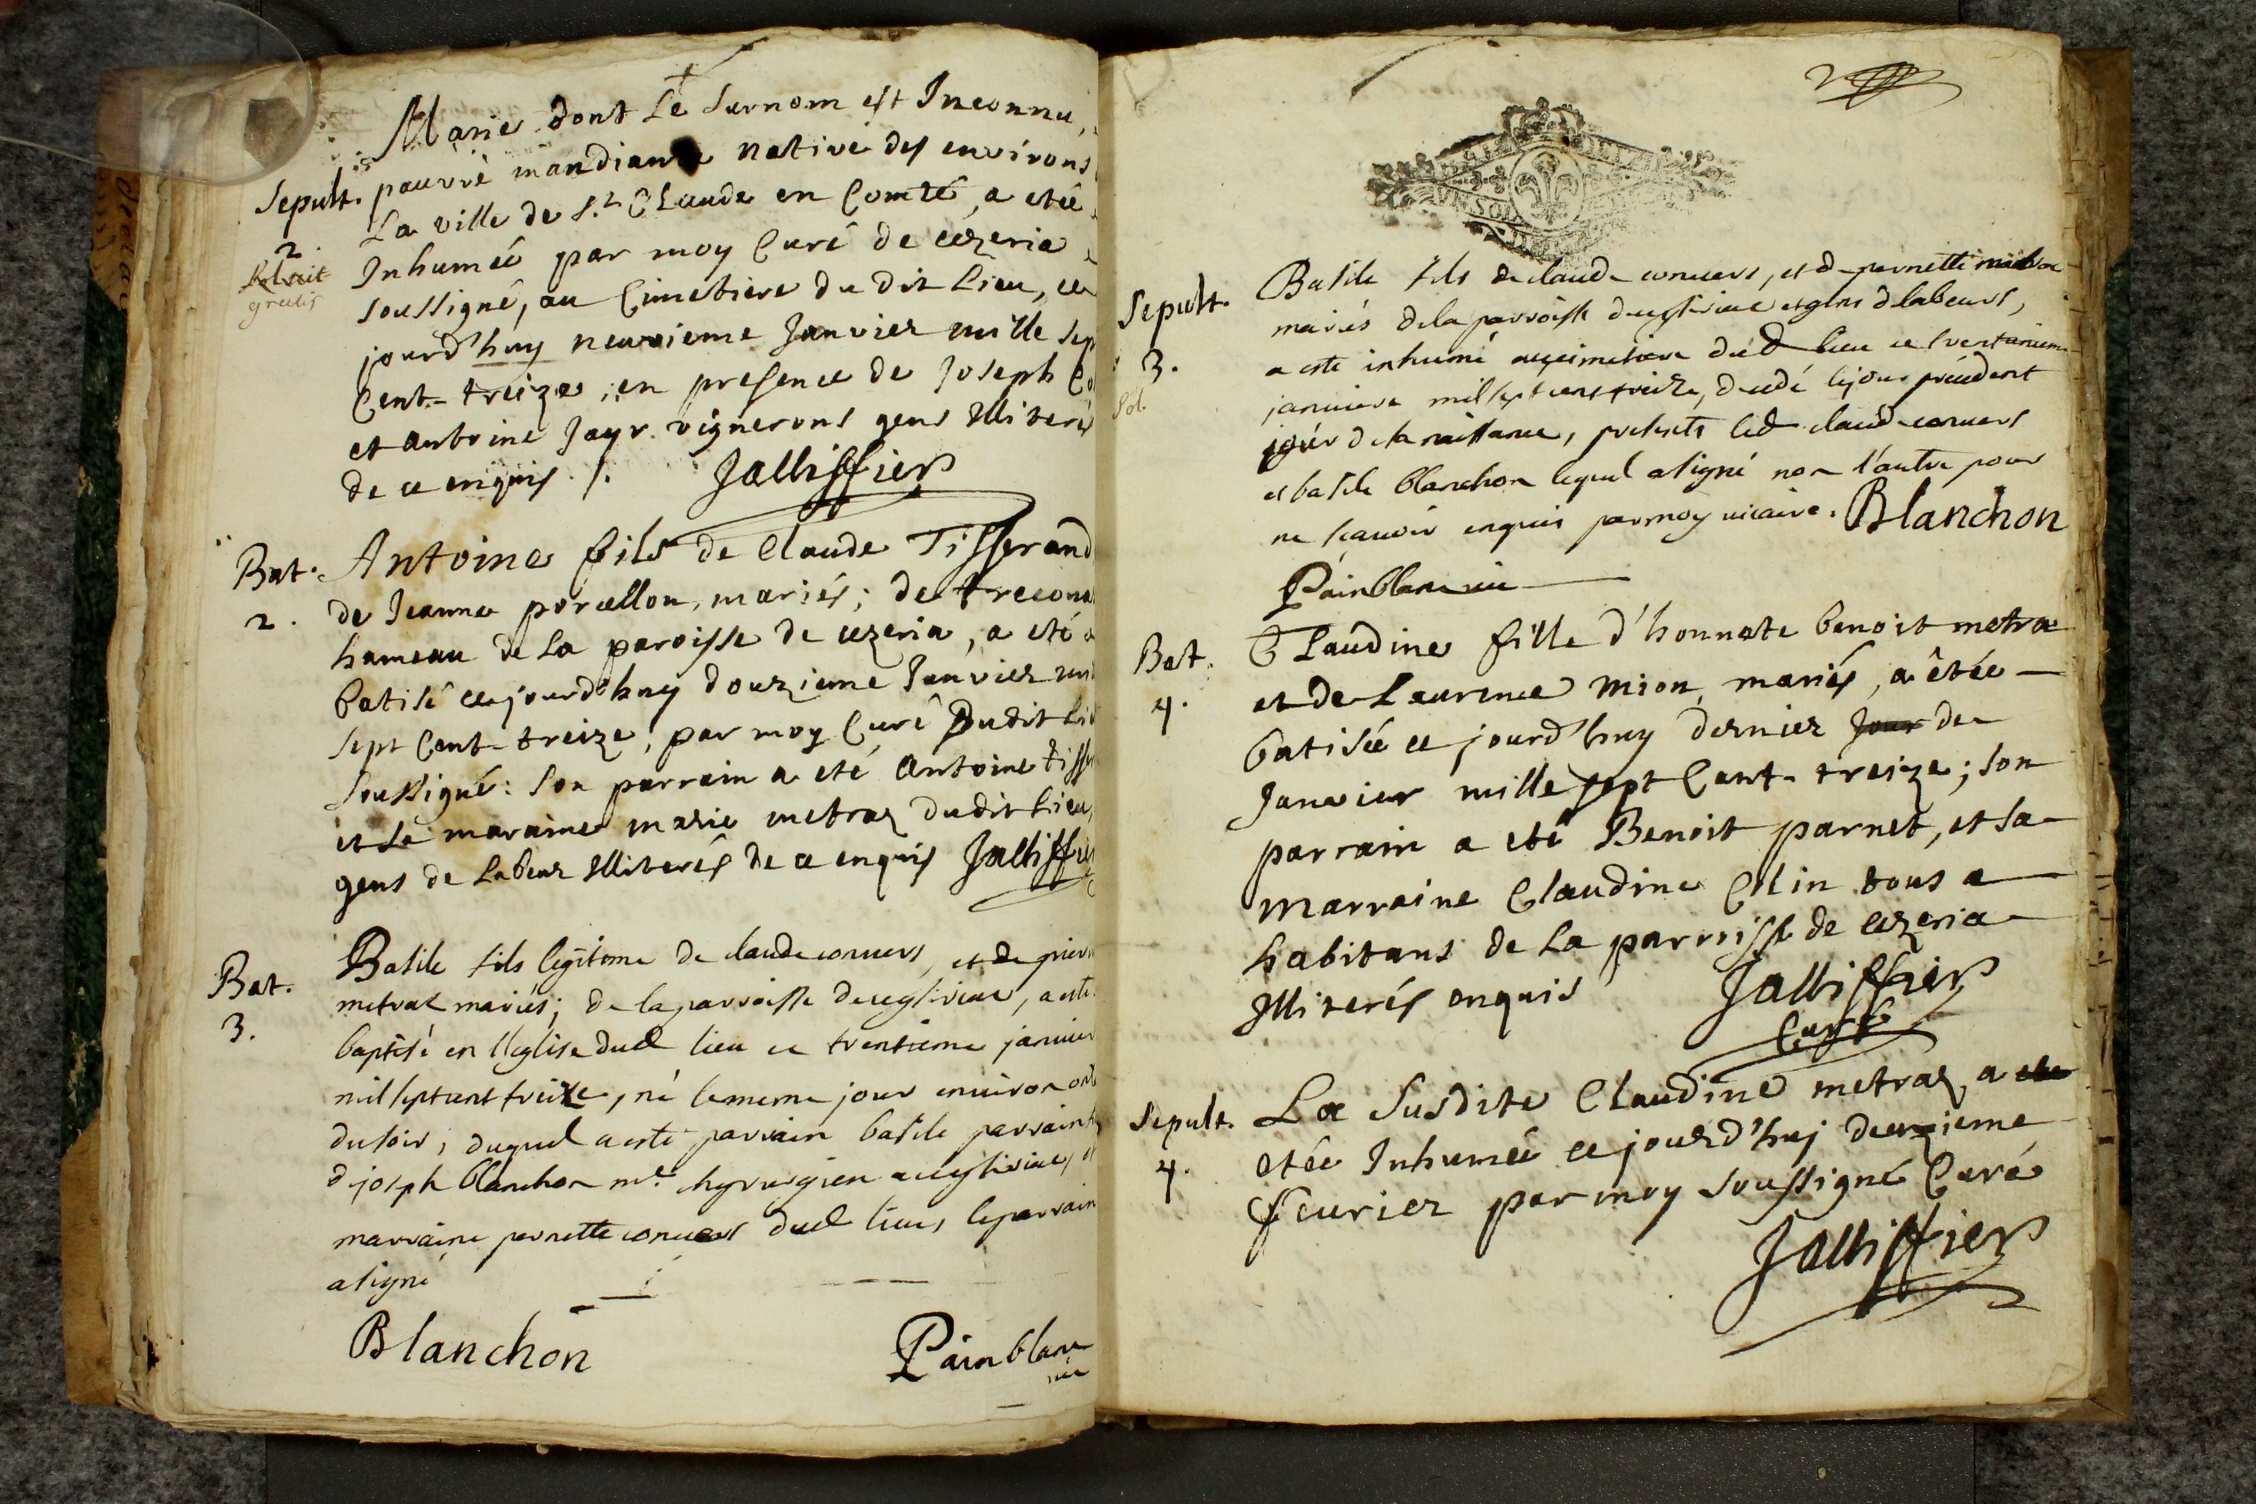 Marie dont Le Surnom est Inconnu,
Sepult. pauvre mandiante native des environs
La ville de S.t Claude en Comté, a etée
2.
Inhumée par moy Curé de cezeria
gratis
soussigné, au Cimetiere du dit Lieu, ce
jourd'huy neuvieme Janvier mille sep
Cent-treize, en presence de Joseph Co
et Antoine Jayr. vignerons gens Illiterés
de ce enquis ./. Jalliffier
Bat. Antoine fils de Claude Tisserand
2. de Jeanne porcellon, mariés; de trecona
hameau de La paroisse de cezeria, a eté
batisé ce jourd'huy douzieme Janvier mi
sept Cent-treize, par moy Curé Dudit Li
Soussigné: Son parrain a eté Antoine tisse
et sa maraine marie metraz dudit Lieu,
gens de Labeur Illiterés de ce enquis Jalliffier
Bat. Basile fils legitime de claude convers, et de
3. metral mariés; de la parroisse de , a esté
baptisé en l'eglise dud lieu ce trentieme janvier
mil sept cent treize, né le meme jour environ
du soir, duquel a esté parrain basile parrain
d joseph blanchon m.e chyrurgien a , et
marraine pernette convers dud lieu, le parrain
a signé
Blanchon Painblanc
vic
2
Sepult. Basile fils de claude convers, et d pernette
mariés de la parroisse de et gens d labeurs,
3. a esté inhumé au cimetiere dud lieu ce trentunieme
janvier mil sept cens treize, decedé le jour précédent
jour de sa naissance, presents led claude convers
et basile blanchon lequel a signé non l'autre pour
ne sçavoir enquis par moy vicaire. Blanchon
Painblanc vic
Bat. Claudine fille d'honnete benoit metra
4. et de Laurence mion, mariés, a êtée
batisée ce jourd'huy dernier jour de
Janvier mille sept Cent-treize; son
parrain a eté Benoit parnet, et sa
marraine Claudine Colin tous
habitans de La parroisse de cezeria
Illiterés enquis Jalliffier
Curé
Sepult. La Susdite Claudine metraz, a ete
4. etée Inhumée ce jourd'huj deuzieme
feurier par moy soussigné Curé
Jalliffier